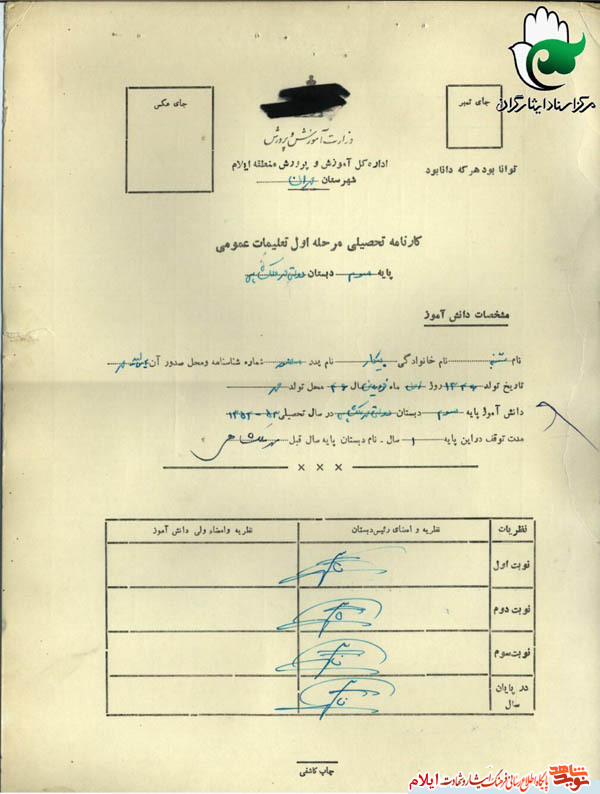 مرکز اسناد ایثارگران
جای عکس
جای تمبر
وزارت آموزش و پرورش
اداره کل آموزش و پرورش منطقه ایلام
شهرستان مهران
توانا بود هر که دانا بود
کارنامه تحصیلی مرحله اول تعلیمات عمومی
پایه سوم دبستان دولتی
مشخصات دانش آموز
نام نام خانوادگی بیکار نام پدر شماره شناسنامه ومحل صدور آن
تاریخ تولد روز اول ماه فروردین سال ۴۶ محل تولد
دانش آموز پایه سوم دبستان دولتی در سال تحصیلی ۵۳-۱۳۵۲
مدت توقف در این پایه ۱ سال - نام دبستان پایه سال قبل ملکشاهی
× × ×
نظریات نظریه و امضای رئیس دبستان نظریه وامضاء ولی دانش آموز
نوبت اول
نوبت دوم
نوبت سوم
در پایان سال
چاپ کاشفی
نوید شاهد پایگاه اطلاع رسانی فرهنگ ایثار و شهادت ایلام